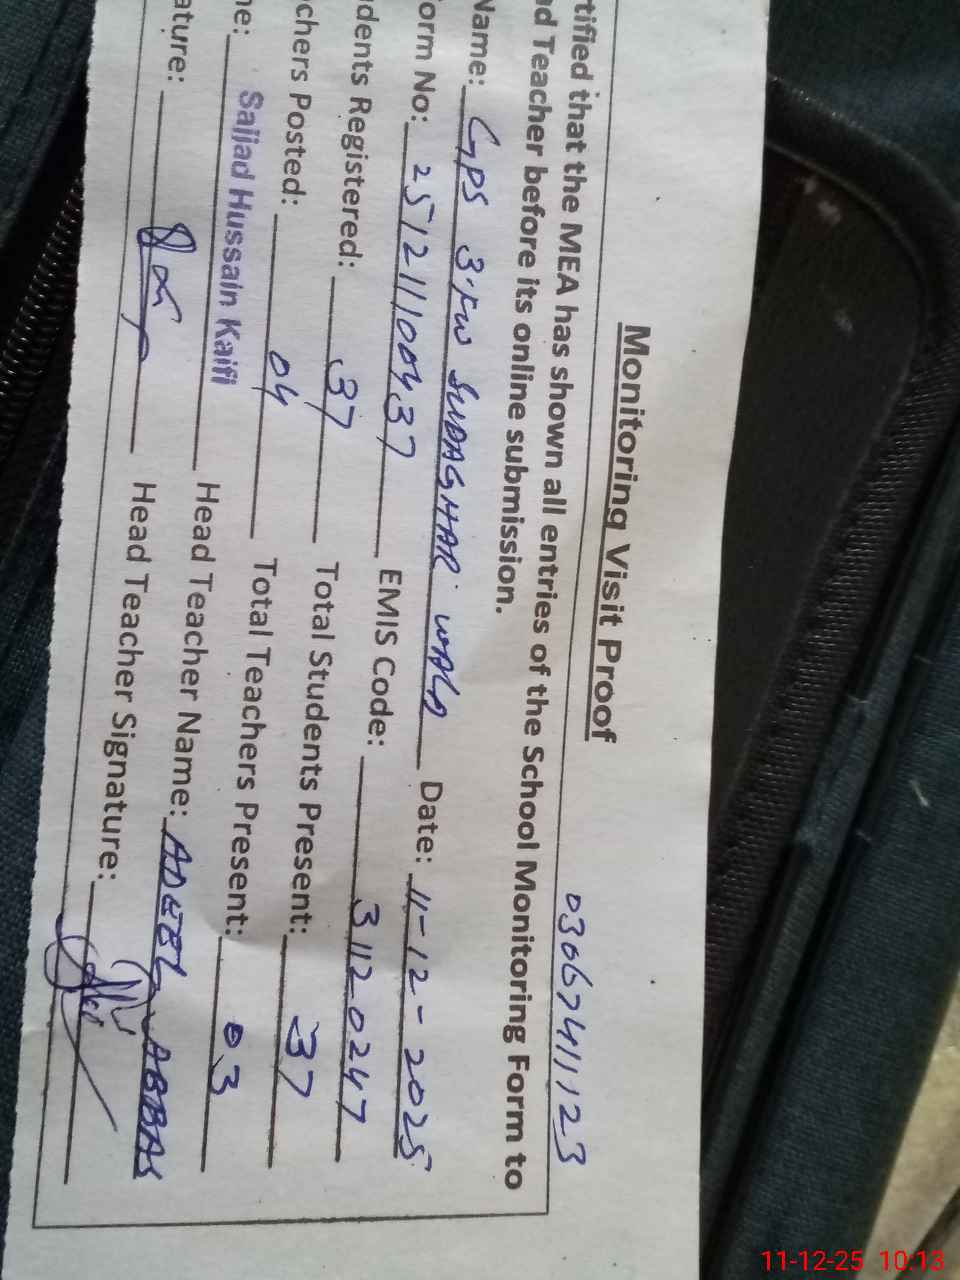 Monitoring Visit Proof
03067411123
tified that the MEA has shown all entries of the School Monitoring Form to
ad Teacher before its online submission.
Name: GPS 3·FW SUDAGHAR WALA Date: 11-12-2025
orm No: 251211100437 EMIS Code: 31120247
dents Registered: 37 Total Students Present: 37
chers Posted: 04 Total Teachers Present: 03
me: Sajjad Hussain Kaifi Head Teacher Name: ADEEL ABBAS
ature: Head Teacher Signature:
11-12-25 10:13